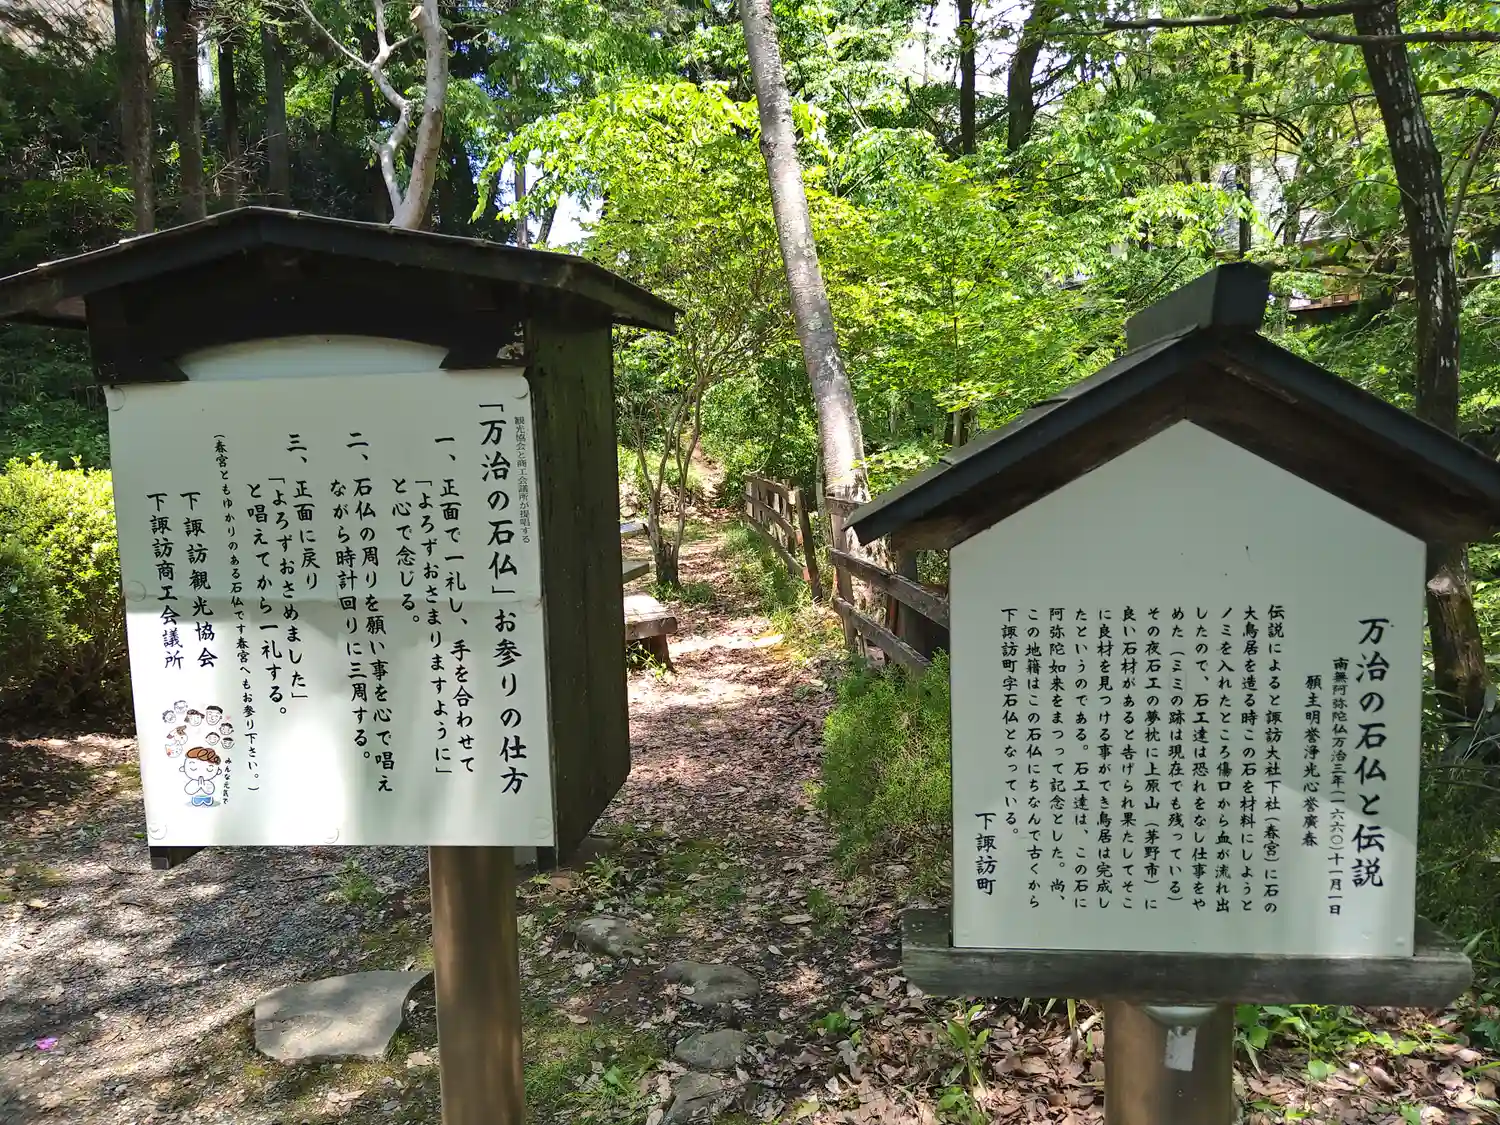 観光協会と商工会議所が提唱する
「万治の石仏」お参りの仕方
一、正面で一礼し、手を合わせて
「よろずおさまりますように」
と心で念じる。
二、石仏の周りを願い事を心で唱え
ながら時計回りに三周する。
三、正面に戻り
「よろずおさめました」
と唱えてから一礼する。
（春宮ともゆかりのある石仏です春宮へもお参り下さい。）
下諏訪観光協会
下諏訪商工会議所
みんな元気で
万治の石仏と伝説
南無阿弥陀仏万治三年（一六六〇）十一月一日
願主明誉浄光心誉廣春
伝説によると諏訪大社下社（春宮）に石の
大鳥居を造る時この石を材料にしようと
ノミを入れたところ傷口から血が流れ出
したので、石工達は恐れをなし仕事をや
めた（ミミの跡は現在でも残っている）
その夜石工の夢枕に上原山（茅野市）に
良い石材があると告げられ果たしてそこ
に良材を見つける事ができ鳥居は完成し
たというのである。石工達は、この石に
阿弥陀如来をまつって記念とした。尚、
この地籍はこの石仏にちなんで古くから
下諏訪町字石仏となっている。
下諏訪町